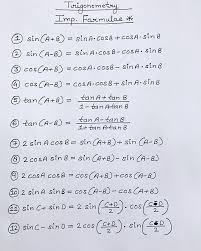 Trigonometry
Imp. Formulas *
① sin(A+B) = sinA.cosB+cosA.sinB
② sin(A-B) = sinA.cosB-cosA.sinB
③ cos(A+B) = cosA.cosB-sinA.sinB
④ cos(A-B) = cosA.cosB+sinA.sinB
⑤ tan(A+B) = tanA+tanB / 1-tanA.tanB
⑥ tan(A-B) = tanA-tanB / 1+tanA.tanB
⑦ 2 sinA cosB = sin(A+B)+sin(A-B)
⑧ 2 cosA sinB = sin(A+B)-sin(A-B)
⑨ 2 cosA cosB = cos(A+B)+cos(A-B)
⑩ 2 sinA sinB = cos(A-B)-cos(A+B)
⑪ sinC+sinD = 2 sin(C+D/2).cos(C-D/2)
⑫ sinC-sinD = 2 cos(C+D/2).sin(C-D/2)